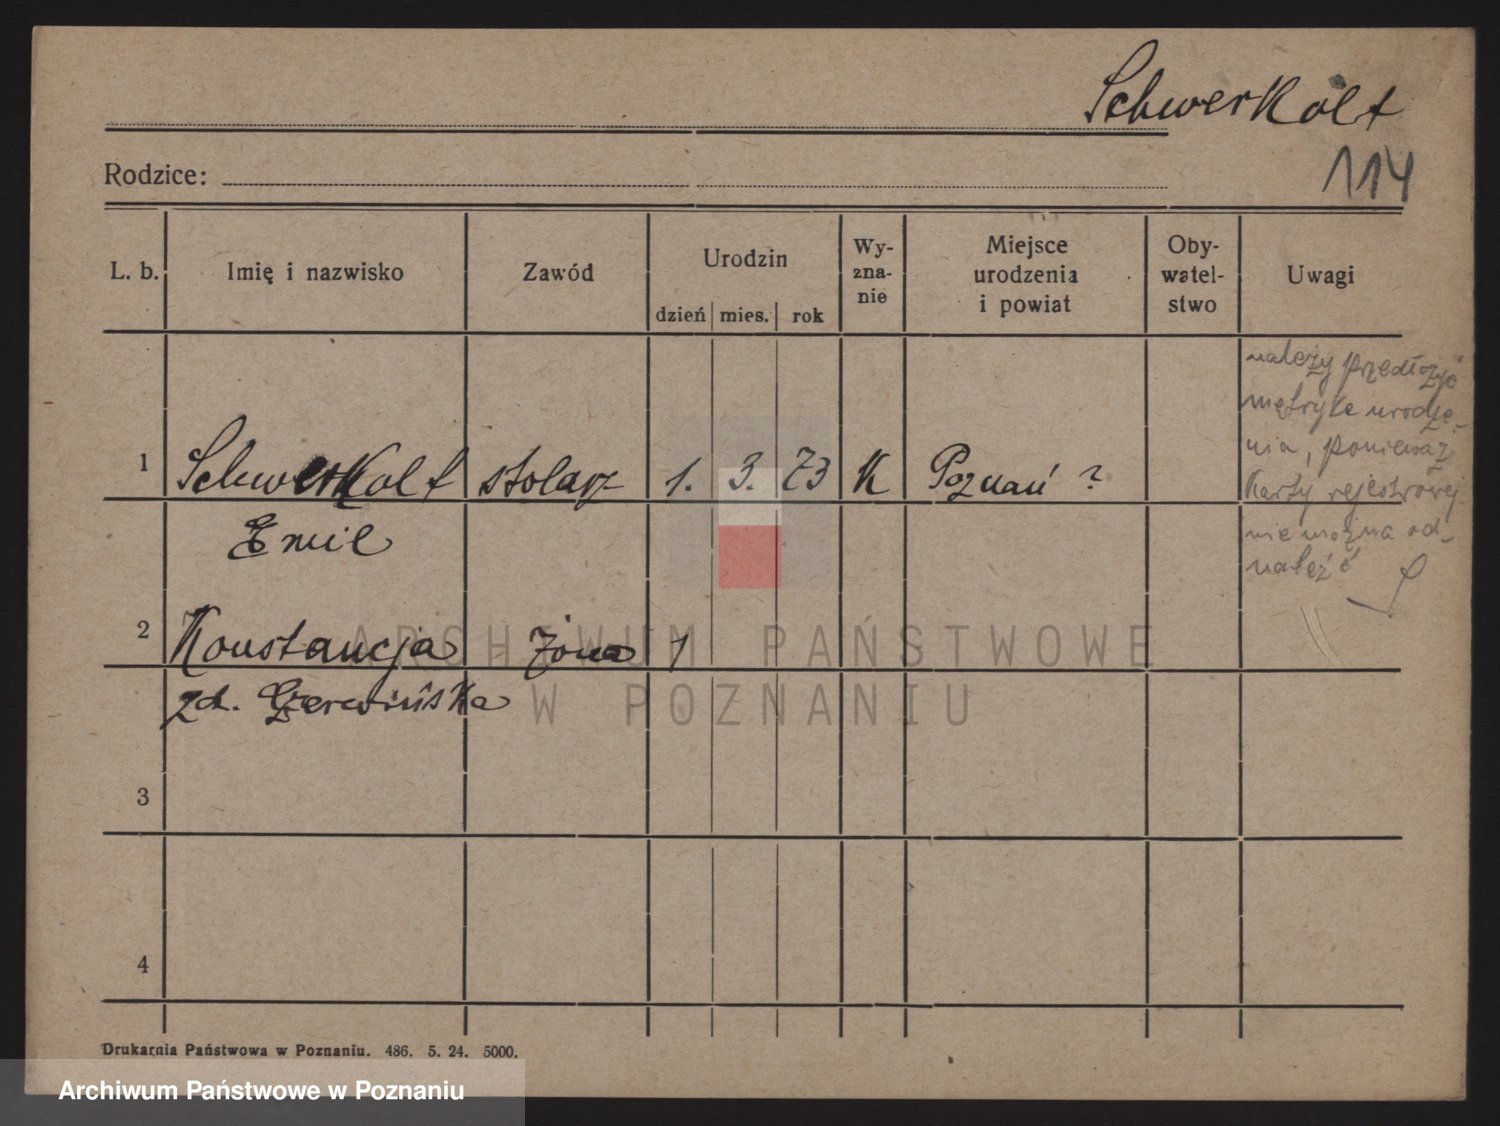 Schwerkolt
114
Rodzice:
L. b. Imię i nazwisko Zawód Urodzin dzień mies. rok Wy-zna-nie Miejsce urodzenia i powiat Oby-watel-stwo Uwagi
należy przedłożyć
metrykę urodze-
nia, ponieważ
Karty rejestrowej
nie można od-
naleźć
1 Schwerkolt stolarz 1. 3. 73 K Poznań ?
Emil
2 Konstancja żona 1
zd. Czerwińska
3
4
ARCHIWUM PAŃSTWOWE
W POZNANIU
Drukarnia Państwowa w Poznaniu. 486. 5. 24. 5000.
Archiwum Państwowe w Poznaniu